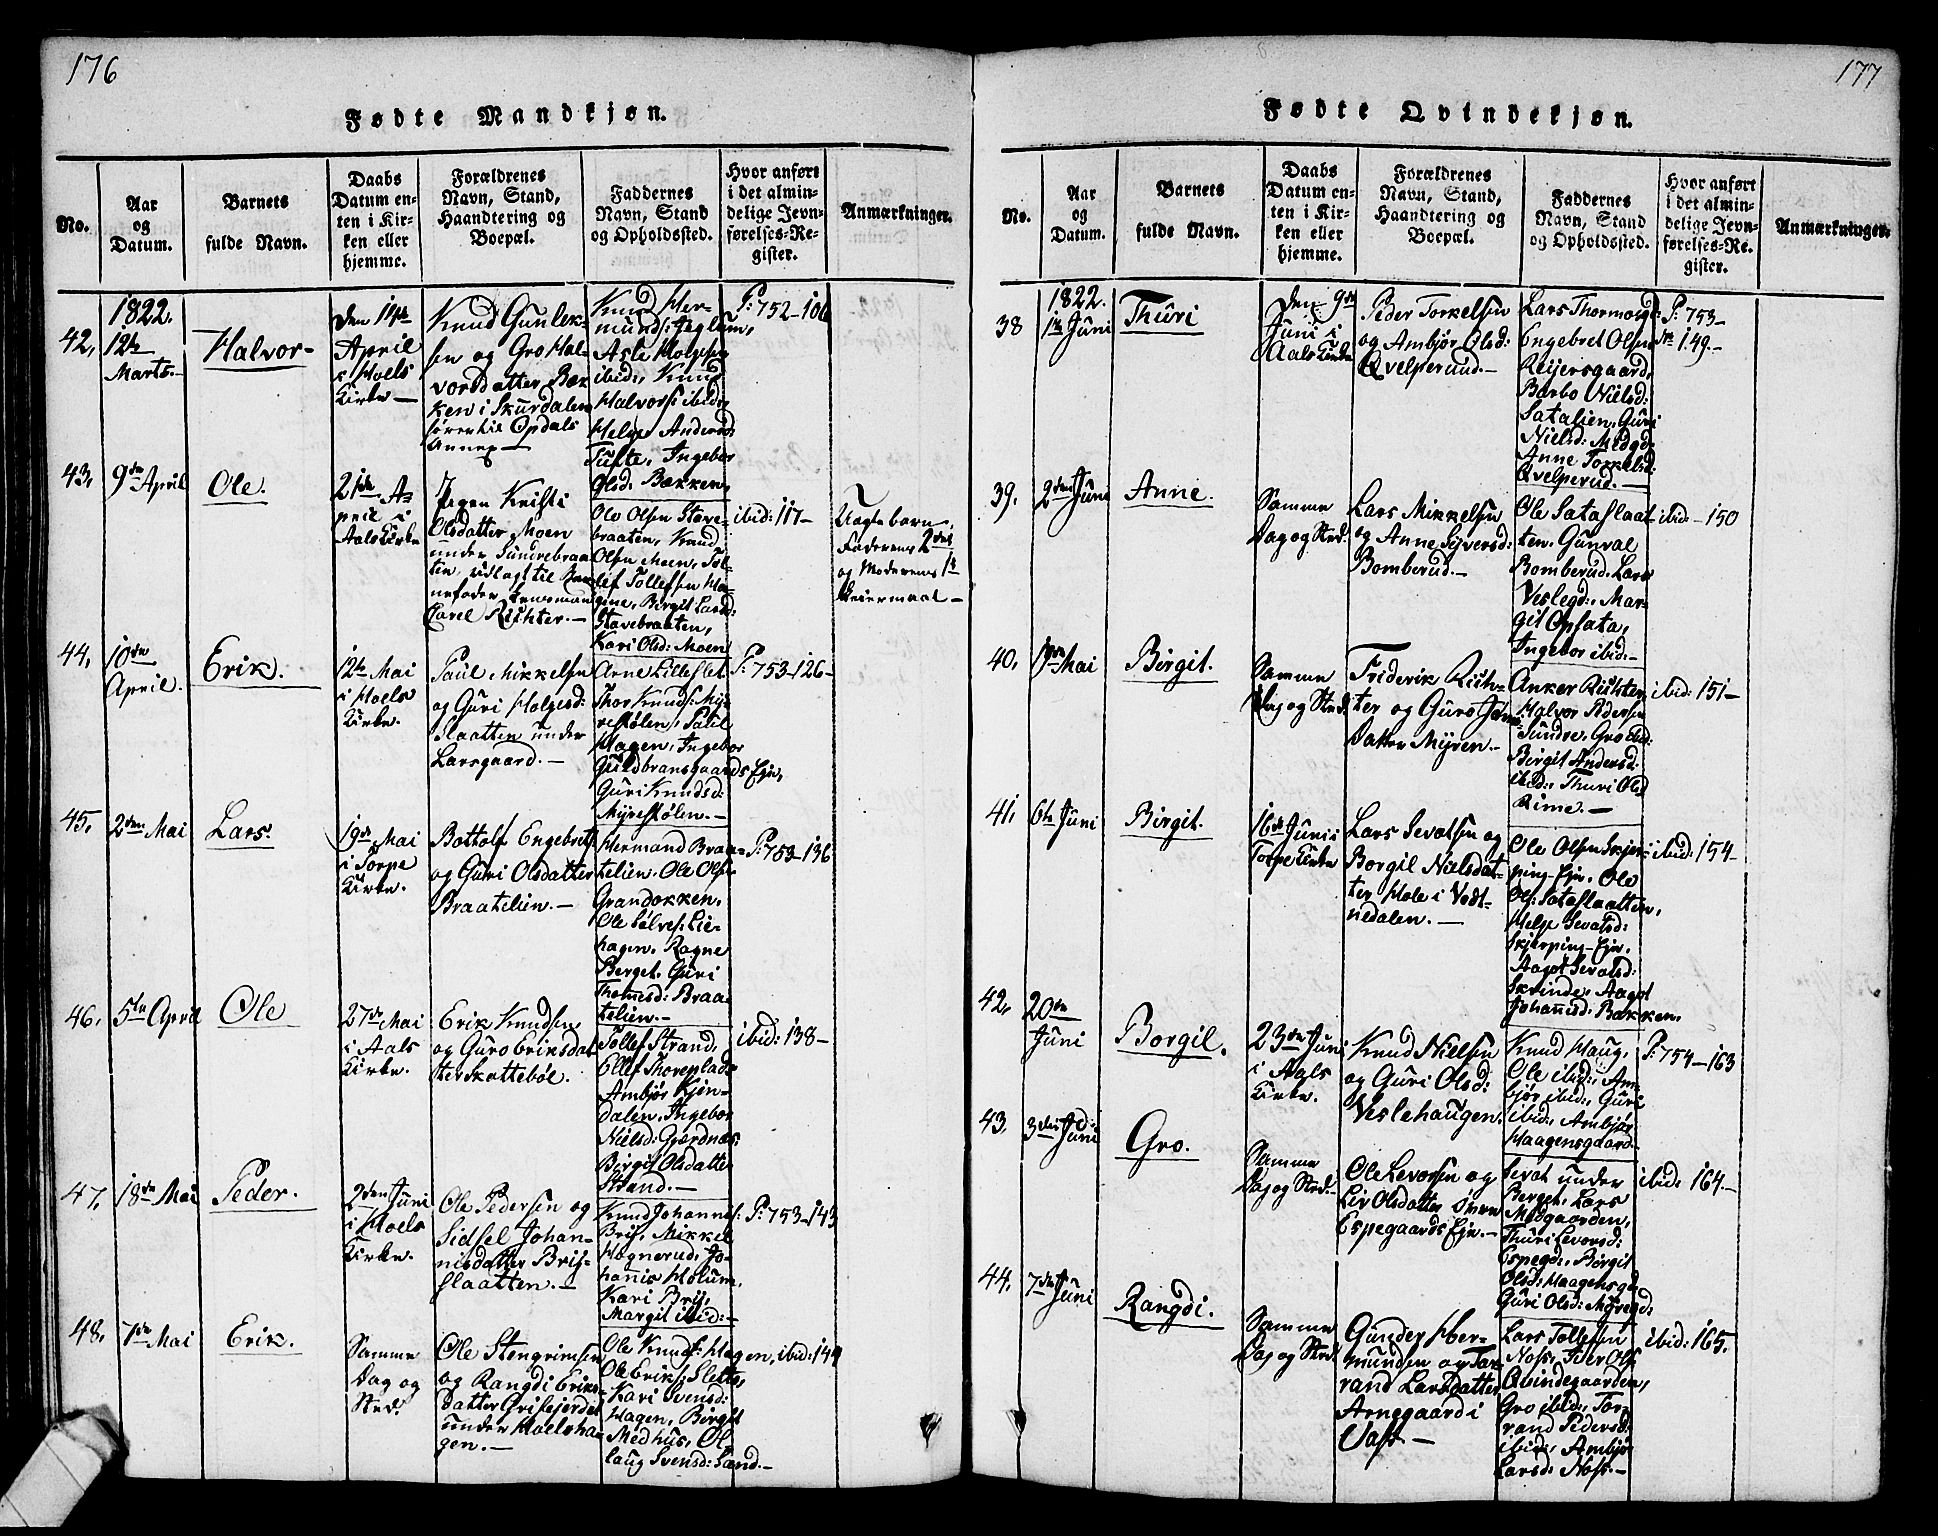 176
Fødte Mandkjøn.
No.
Aar
og
Datum.
Barnets
fulde Navn.
Daabs
Datum en-
ten i Kir-
ken eller
hjemme.
Forældrenes
Navn, Stand,
Haandtering og
Boepæl.
Faddernes
Navn, Stand
og Opholdssted.
Hvor anført
i det almin-
delige Jevn-
førelses-Re-
gister.
Anmærkninger.
42,
1822.
12te
Marts.-
Halvor-
den 11te
April
i Hoels
Kirke-
Knud Gunlek-
sen og Gro Hal-
vorsdatter Bæk-
ken i Skurdalen
hørende til Opdals
Annex-
Knud Her-
munds:
Asle Holgesen
ibid:, Knud
Halvors: ibid:
Helge Anders:
Tufte, Ingebor
Olsd: Bækken,
P: 752-106
43,
9de April
Ole.
21de A-
pril i
Aals Kirke
Pigen Kristi
Olsdatter Moen
under Sundrebraa-
ten, udlagt til Bar-
nefader Lensmand
Carel Richter.-
Ole Olsen Stave-
braaten, Knud
Olsen Moen, Tol-
lef Tollefsen Ha-
gene, Birgit Larsd:
Stavebraaten,
Kari Olsd: Moen
ibid: 117-
Uægte barn.
Faderens 2det
og Moderens 1te
Leiermaal-
44,
10de
April.
Erik.
12te Mai
i Hoels
Kirke.
Paul Mikkelsen
og Guri Holgesd:
Slaatten under
Larsgaard.-
Arne Lilleslet
Thor Knuds: My-
restølen, Paul
Hagen, Ingebor
Guldbransgaards Eje,
Guri Knudsd:
Myrestølen.-
P: 753-126-
45,
2den Mai
Lars.
19de Mai
i Torpe
Kirke.
Bottolf Engebrets:
og Guri Olsdatter
Braatelien.-
Hermand Braa-
telien, Ole Ols:
Grandokken,
Ole Sølves: Lie-
hagen, Ragne
Berget, Guri
Thomesd: Braa-
telien.-
P: 753-136
46,
5te April
Ole
27de Mai
i Aals
Kirke.
Erik Knudsen
og Guro Eriksdat-
ter Skattebøl.
Tollef Strand,
Ellef Thoreplads
Ambjør Kjen-
dalen, Ingebor
Nielsd: Gjerdnæs
Birgit Olsdatter
Strand.-
ibid: 138-
47,
18de Mai
Peder.
2den Juni
i Hoels
Kirke.
Ole Pedersen og
Sidsel Johan-
nisdatter Bris-
slaatten.-
Knud Johannes:
Bris, Mikkel
Høgnerud, Jo-
hannis Holum,
Kari Bris,
Margit ibid:-
P: 753-143
48,
7de Mai
Erik.
Samme
Dag og
Sted.
Ole Stengrimsen
og Rangdi Eriks-
datter Grisejordet
under Hoelsha-
gen.-
Ole Knuds: Hagen,
Ole Eriks: Slette,
Kari Svensd:
Hagen, Birgit
Medhus, Ol-
laug Svensd: Sand.-
ibid: 144
177
Fødte Qvindekjøn.
No.
Aar
og
Datum.
Barnets
fulde Navn.
Daabs
Datum en-
ten i Kir-
ken eller
hjemme.
Forældrenes
Navn, Stand,
Haandtering og
Boepæl.
Faddernes
Navn, Stand
og Opholdssted.
Hvor anført
i det almin-
delige Jevn-
førelses-Re-
gister.
Anmærkninger.
38
1822.
1te Juni
Thuri
Den 9de
Juni i
Aals Kirke
Peder Torkelsen
og Ambjør Olsd:
Qvelperud.-
Lars Thormosg:
Engebret Olsen
Reijersgaard,
Barbo Nielsd:
Satalien, Guri
Nielsd: Medgd:
Anne Torkelsd:
Qvelperud.-
P: 753-
No 149.-
39.
2den Juni
Anne.
Samme
Dag og Sted.
Lars Mikkelsen
og Anne Syversd:
Bomberud.-
Ole Sataslaat-
ten, Gunval
Bomberud, Lars
Veslegd:, Mar-
git Opsata,
Ingebor ibid:-
ibid: 150
40,
17de Mai
Birgit.
Samme
Dag og Sted.
Friderik Rich-
ter og Guro Jøns-
datter Myren-
Anker Richter,
Halvor Pedersen
Sundre, Gro ibid:
Birgit Andersd:
ibid:, Thuri Olsd
Rime.-
ibid: 151-
41,
6te Juni
Birgit.
16de Juni i
Torpe Kirke
Lars Sevatsen og
Borgil Nielsdat-
ter Hole i Vodt-
nedalen.-
Ole Olsen Skjer-
ping-Eje, Ole
Ols: Sataslaatten,
Helge Sevatsd:
Skjerping-Eje,
Aagot Sevatsd:
Skrinde, Aagot
Johannsd: Bækken,
ibid: 154-
42,
20de
Juni
Borgil.
23de Juni
i Aals
Kirke.
Knud Nielsen
og Guri Olsd:
Veslehaugen.
Knud Haug,
Ole ibid:, Am-
bjør ibid:, Guri
ibid:, Ambjør
Haagensgaard-
P: 754-163
43,
3die Juni
Gro.
Samme
Dag og Sted.
Ole Levorsen og
Liv Olsdatter Øvre
Espegaards Eje.-
Sevat under
Berget, Lars
Medgaarden,
Thuri Levorsd:
Espegd:, Birgit
Olsd: Haagensgd:
Guri Olsd: Myregd:
ibid: 164-
44,
7de Juni
Rangdi.
Samme
Dag og Sted.
Gunder Her-
mundsen og Tor-
rand Larsdatter
Arnegaard i
Vats-
Lars Tollefsen
Noss, Peder Ols:
Qvindegaarden,
Gro ibid:, Tor-
rand Pedersd:
ibid:, Ambjør
Larsd: Noss.-
ibid: 165.